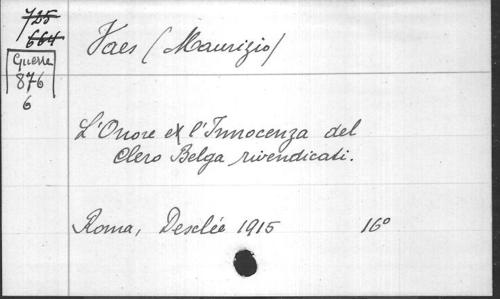 725
664
Guerre
876
6
Vaes (Maurizio)
L'Onore e l'Innocenza del
Clero Belga rivendicati.
Roma, Desclée 1915 16º